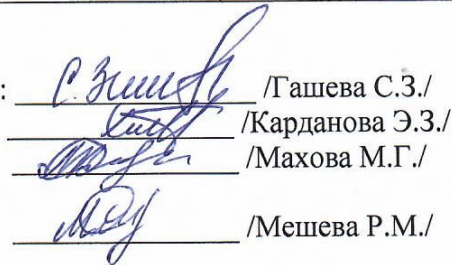 : /Гашева С.З./
/Карданова Э.З./
/Махова М.Г./
/Мешева Р.М./